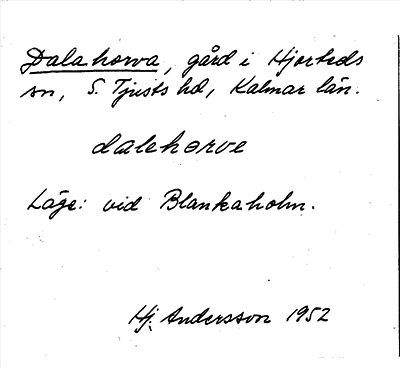 Dalahorva, gård i Hjorteds
sn, S. Tjusts hd, Kalmar län.
dalehørve
Läge: vid Blankaholm.
Hj. Andersson 1952